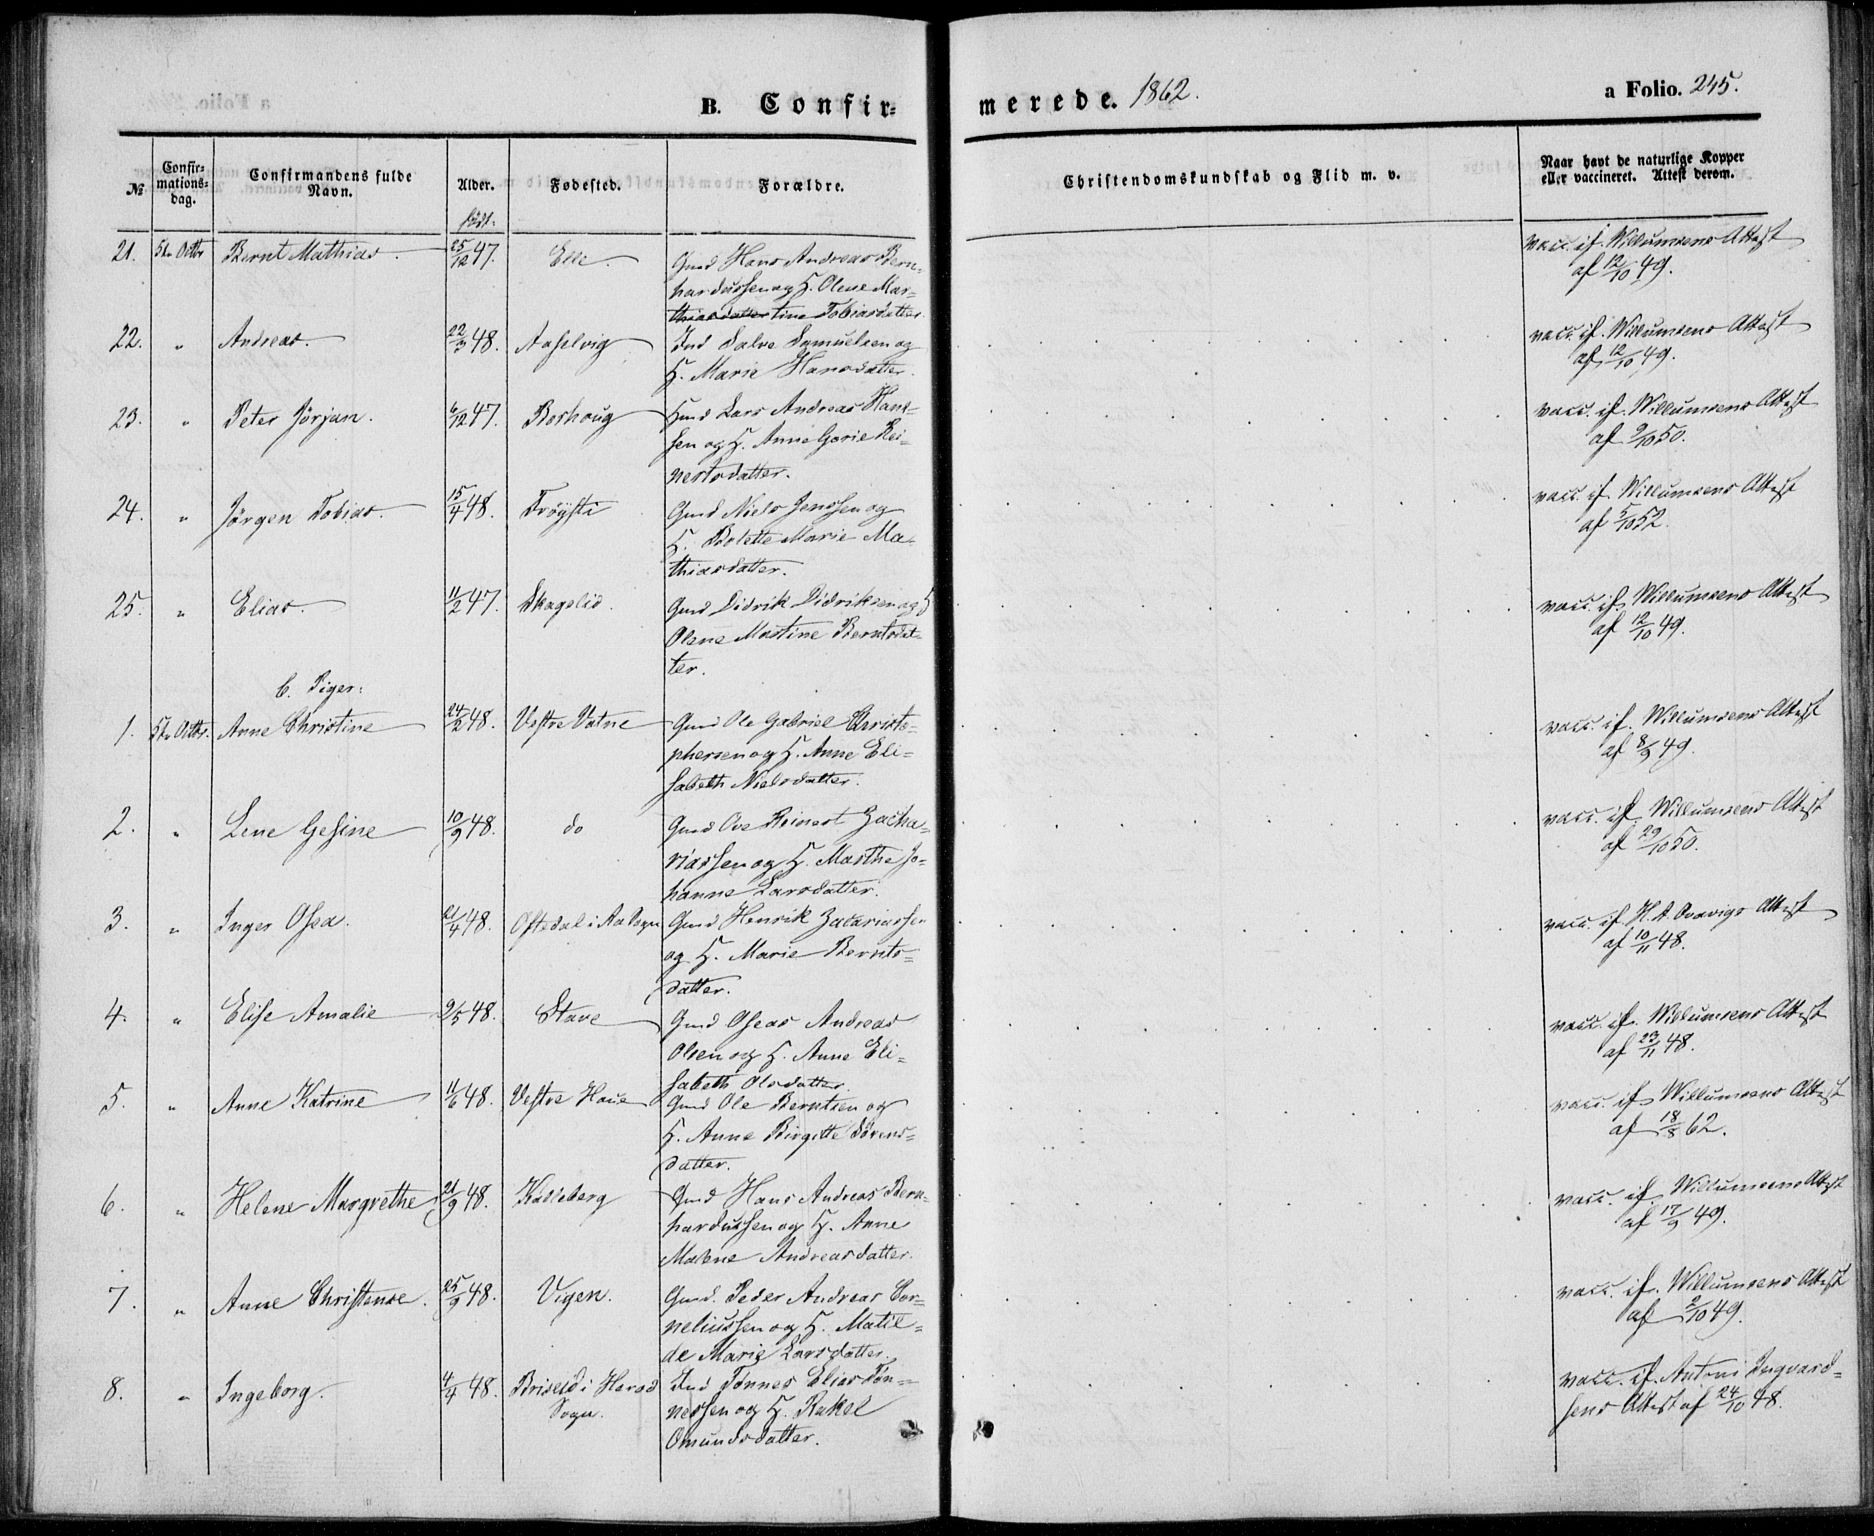 B. Confirmerede. 1862.
a Folio. 245.
№
Confirmationsdag.
Confirmandens fulde Navn.
Alder.
Fødested.
Forældre.
Christendomskundskab og Flid m. v.
Naar havt de naturlige Kopper
eller vaccineret. Attest derom.
født:
21. 5te Octbr Bernt Mathias. 25/12 47. Elle Gmd Hans Andreas Bern=
hardussen og H. Olene Mar=
thiasdatter tine Tobiasdatter
vacc. if. Willumsens Attest
af 12/10 49.
22. " Andreas. 22/3 48. Aaselvig Ind Salve Samuelsen og
H. Marie Hansdatter.
vacc. if. Willumsens Attest
af 12/10 49.
23. " Peter Jørjan. 6/12 47. Borhoug Gmd Lars Andreas Han=
sen og H. Anne Gorie Rei=
nertsdatter.
vacc. if. Willumsens Attest
af 9/10 50.
24. " Jørgen Tobias. 15/4 48. Trøysti Gmd Niels Jenssen og
H. Bolette Marie Ma=
thiasdatter.
vacc. if. Willumsens Attest
af 5/10 52.
25. " Elias. 11/2 47. Skagelid. Gmd Didrik Didriksen og H
Olene Martine Berntsdat=
ter.
vacc. if. Willumsens Attest
af 12/10 49.
b. Piger:
1. 5te Octbr. Anne Christine 24/2 48. Vestre Vatne Gmd Ole Gabriel Christo=
phersen og H. Anne Eli=
sabeth Nielsdatter.
vacc. if. Willumsens Attest
af 8/9 49.
2. " Lene Gesine 10/9 48. do Gmd Ove Reinert Zacha=
riassen og H. Marthe Jo=
hanne Larsdatter.
vacc. if. Willumsens Attest
af 29/10 50.
3. " Inger Osea. 21/4 48. Oftedal i Aa Sogn Gmd Henrik Zacariassen
og H. Marie Bernts=
datter.
vacc. if. H. A. Ovavigs Attest
af 10/11 48.
4. " Elise Amalie 9/5 48. Stave Gmd Oseas Andreas
Olsen og H. Anne Eli=
sabeth Olsdatter.
vacc. if. Willumsens Attest
af 23/11 48.
5. " Anne Katrine 11/6 48. Vestre Haue Gmd Ole Berntsen og
H. Anne Birgitte Sørens=
datter.
vacc. if. Willumsens Attest
af 18/8 62.
6. " Helene Margrethe 21/9 48. Kalleberg Gmd Hans Andreas Bern=
hardussen og H. Anne
Malene Andreasdatter.
vacc. if. Willumsens Attest
af 17/9 49.
7. " Anne Christense. 25/9 48. Vigen. Gmd. Peder Andreas Cor=
neliussen og H. Matil=
de Marie Larsdatter.
vacc. if. Willumsens Attest
af 2/10 49.
8. " Ingeborg. 4/4 48. Briseid i Herad
Sogn. Ind Tønnes Elias Tøn=
nessen og H. Rakel
Omundsdatter.
vacc. if. Antoni Ingvard=
sens Attest af 24/10 48.